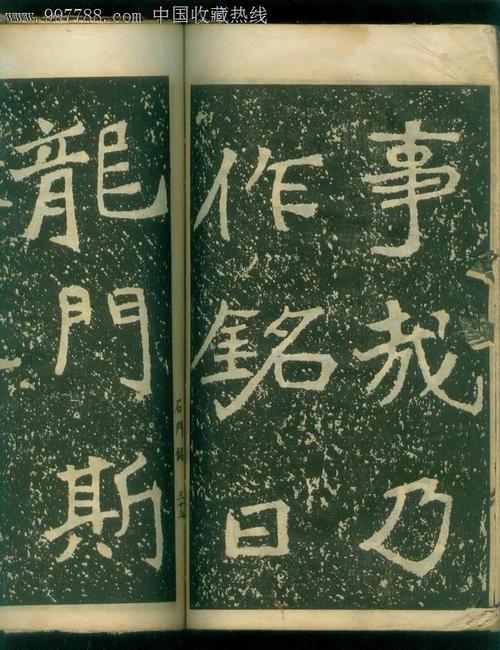 www.997788.com 中国收藏热线
事哉乃
作銘曰
龍門斯
石門銘
三十五